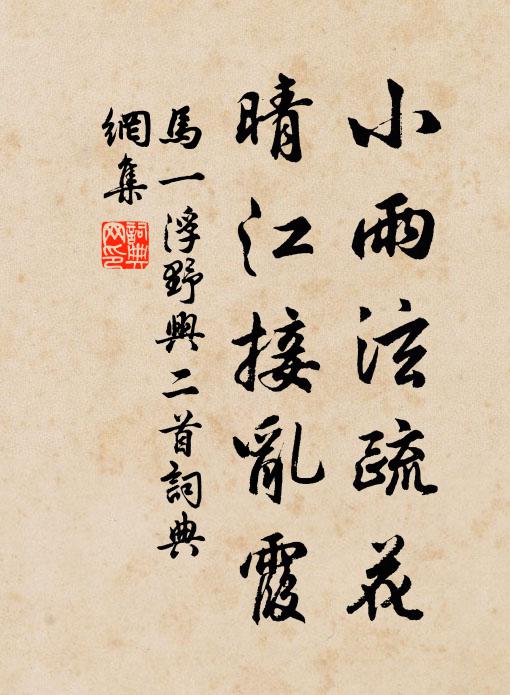 小雨泫疏花
晴江接亂霞
馬一浮野興二首詞典
網集
詞典
网印